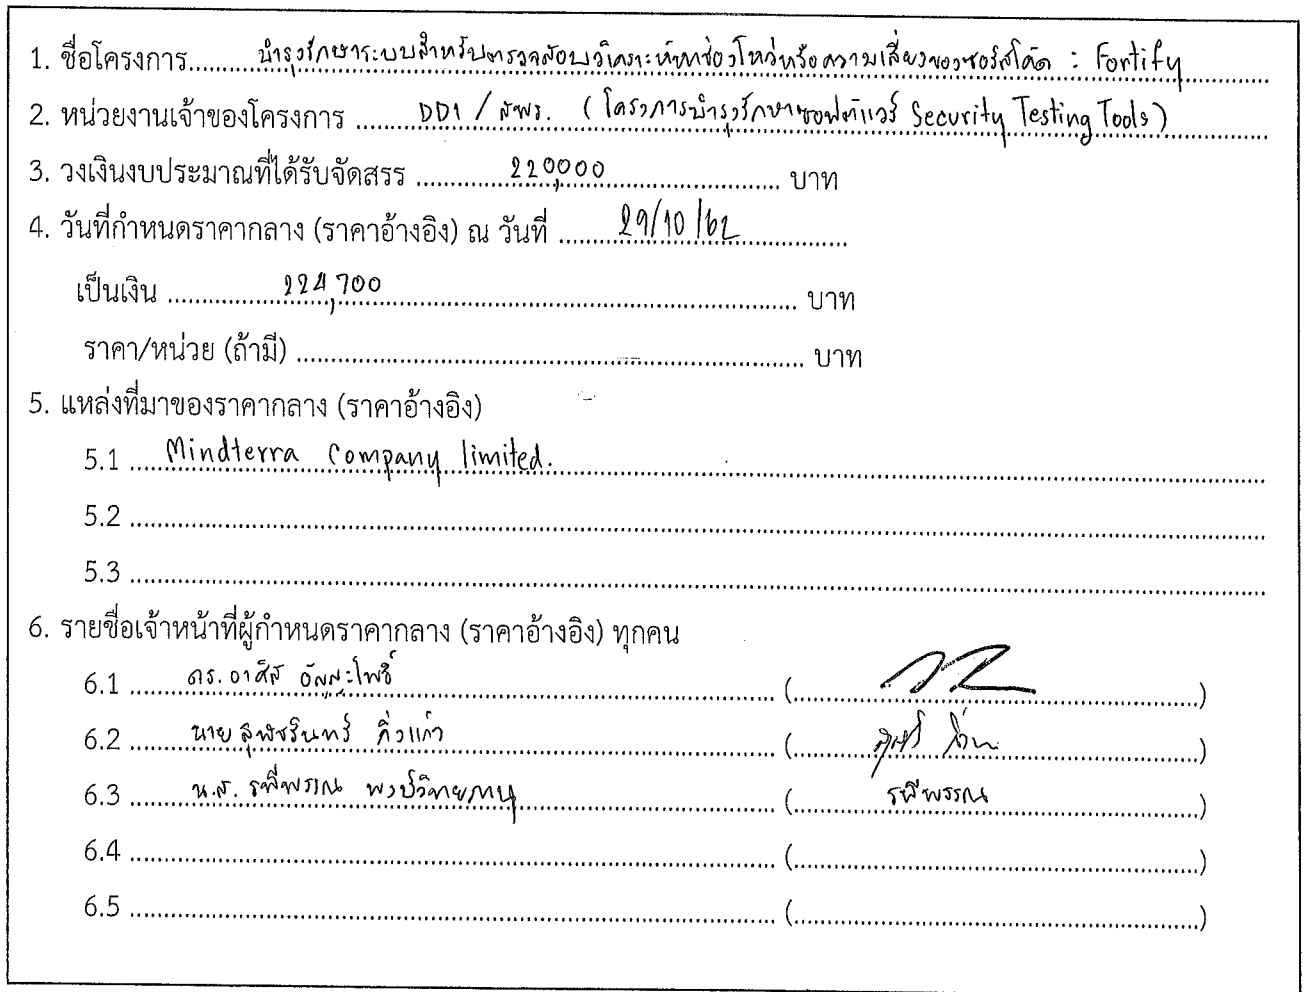 1. ชื่อโครงการ........บำรุงรักษาระบบสำหรับตรวจสอบวิเคราะห์หาช่องโหว่หรือความเสี่ยงของซอร์สโค้ด : Fortify
2. หน่วยงานเจ้าของโครงการ ........DD1 / สพร. (โครงการบำรุงรักษาซอฟต์แวร์ Security Testing Tools)
3. วงเงินงบประมาณที่ได้รับจัดสรร ........220,000........ บาท
4. วันที่กำหนดราคากลาง (ราคาอ้างอิง) ณ วันที่ ........29/10/62........
เป็นเงิน ........224,700........ บาท
ราคา/หน่วย (ถ้ามี) ........ บาท
5. แหล่งที่มาของราคากลาง (ราคาอ้างอิง)
5.1 ....Mindterra Company limited.........
5.2 ........
5.3 ........
6. รายชื่อเจ้าหน้าที่ผู้กำหนดราคากลาง (ราคาอ้างอิง) ทุกคน
6.1 ....ดร. อาศิส อัญญะโพธิ์........ (................)
6.2 ....นาย สุพัชรินทร์ กิ่งแก้ว........ (................)
6.3 ....น.ส. รพีพรรณ ........ (....รพีพรรณ....)
6.4 ........ (................)
6.5 ........ (................)